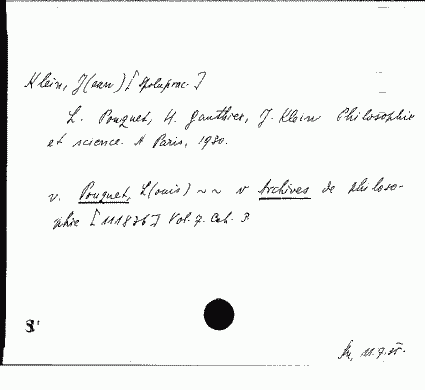 Klein, J(ean) [spoluprac.]
L. Pouquet, H. Gauthier, J. Klein Philosophie
et science. A Paris, 1930.
v. Pouquet, L(ouis) ~~ v Archives de philoso-
phie [111836] Vol. 7. Cah. 3.
11.7.